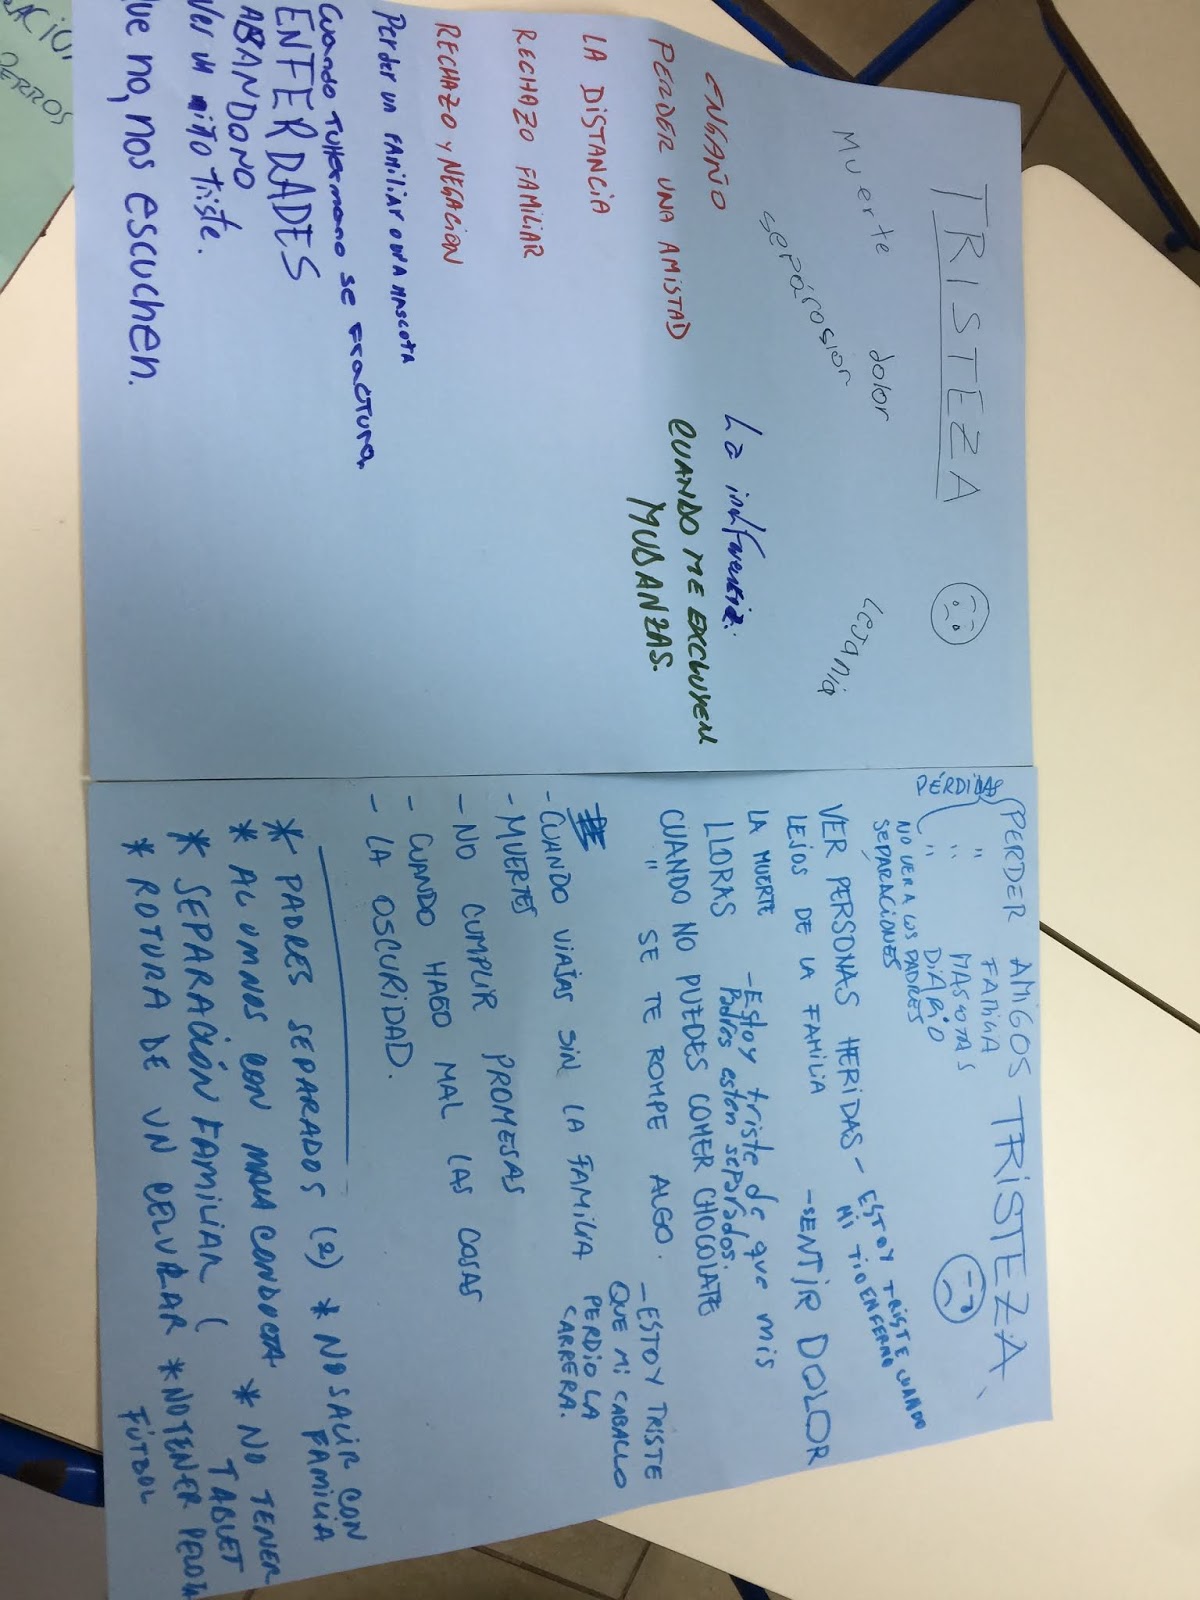 TRISTEZA
Muerte dolor Lejania
separasion
ENGAÑO
La indiferencia.
PERDER UNA AMISTAD
CUANDO ME EXCLUYEN
MUDANZAS.
LA DISTANCIA
RECHAZO FAMILIAR
RECHAZO Y NEGACION
Perder un FAMILIAR O UNA MASCOTA
Cuando tu Hermano se Fractura
ENFERDADES
ABANDONO
Ver un niño triste.
que no, nos escuchen.
TRISTEZA
PERDER AMIGOS
PÉRDIDAS " FAMILIA
" MASCOTAS
" DIARIO
NO VER A LOS PADRES
SEPARACIONES
VER PERSONAS HERIDAS - ESTOY TRISTE CUANDO
MI TIO ENFERMO
LEJOS DE LA FAMILIA - SENTIR DOLOR
LA MUERTE
- Estoy triste de que mis
Padres estan separados.
LLORAS
CUANDO NO PUEDES COMER CHOCOLATE
" SE TE ROMPE ALGO.
- ESTOY TRISTE
QUE MI CABALLO
PERDIO LA
CARRERA.
- CUANDO VIAJAS SIN LA FAMILIA
- MUERTES
- NO CUMPLIR PROMESAS
- CUANDO HAGO MAL LAS COSAS
- LA OSCURIDAD.
* PADRES SEPARADOS (2) * NO SALIR CON
FAMILIA
* ALUMNOS CON MALA CONDUCTA * NO TENER
TABLET
* SEPARACIÓN FAMILIAR (
* ROTURA DE UN CELULAR * NO TENER PELOTA
FÚTBOL